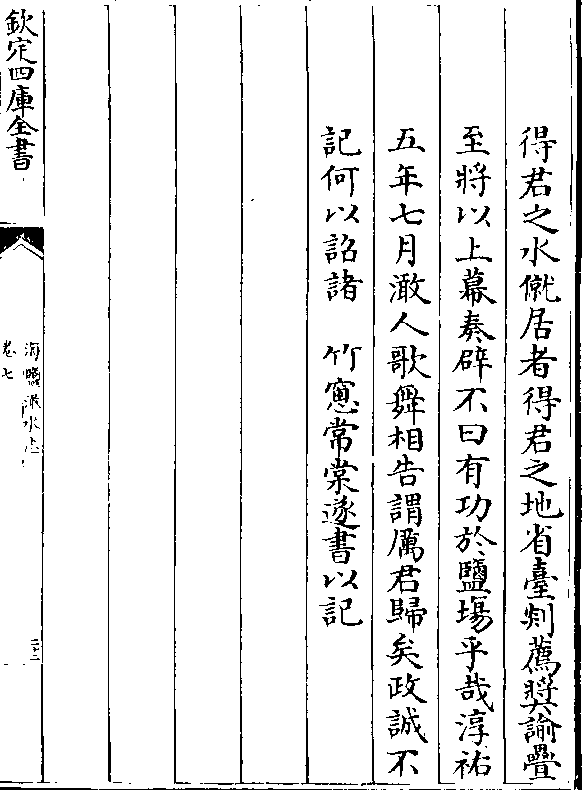 得君之水僦居者得君之地省臺剡薦奬諭疊
至將以上幕奏辟不曰有功於鹽場乎哉淳祐
五年七月澉人歌舞相告謂厲君歸矣政誠不
記何以詔諸　竹窻常棠遂書以記
欽定四庫全書
海鹽澉水志
卷七
二十二